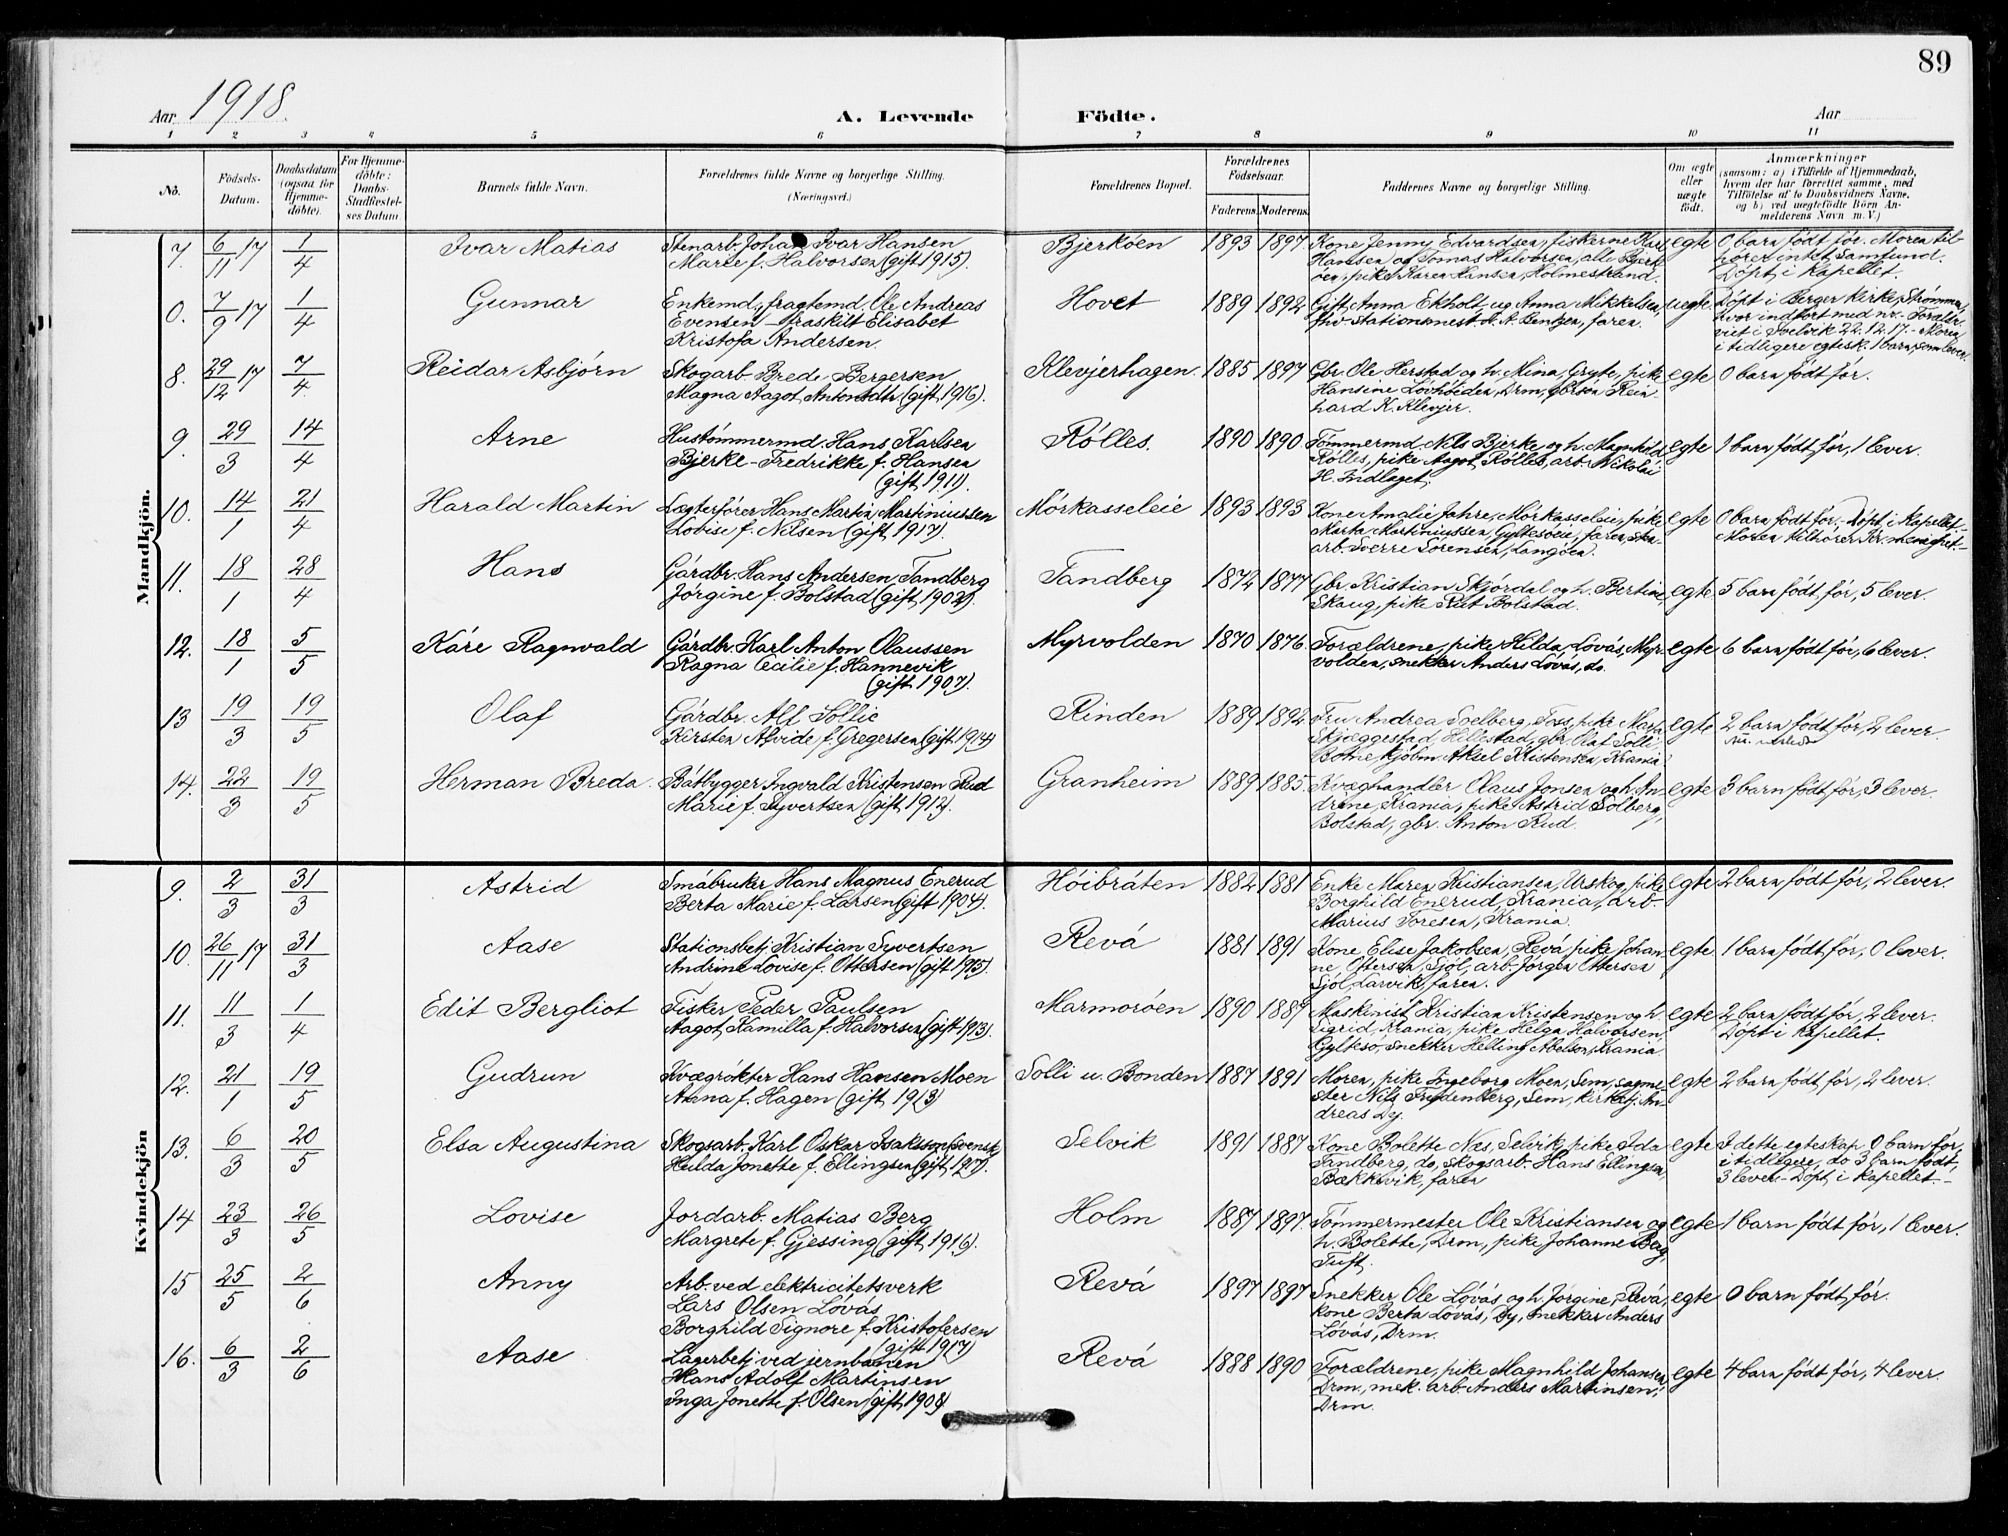 89
Aar 1918.
A. Levende Födte.
Aar
1 2 3 4 5 6 7 8 9 10 11
No.
Födsels-Datum.
Daabsdatum (ogsaa for Hjemme-döbte).
For Hjemme-döbte: Daabs-Stadfæstel-ses Datum
Barnets fulde Navn.
Forældrenes fulde Navne og borgerlige Stilling. (Næringsvei.)
Forældrenes Bopæl.
Forældrenes Födselsaar.
Faderens.
Moderens.
Faddernes Navne og borgerlige Stilling.
Om ægte eller uægte födt.
Anmærkninger
(saasom: a) i Tilfælde af Hjemmedaab, hvem der har forrettet samme, med Tilföielse af to Daabsvidners Navne, og b) ved uægtefödte Börn Anmelderens Navn m. V.)
Mandkjön.
7. 6/11 17 1/4 Ivar Matias Stenarb. Johan Ivar Hansen Bjerkøen 1893 1897 Kone Jenny Edvardsen, fiskerne Karl egte 0 barn født før. Moren til-
Marie f. Halvorsen (gift 1915). Hansen og Tomas Halvorsen, alle Bjerk- hører intet Samfund.
øen, pike Karen Hansen, Holmestrand. Døpt i Kapellet.
0. 7/9 17 1/4 Gunnar Enkemd., fragtemd. Ole Andreas Hovet 1889 1892 Gift Anna Ekholt og Anna Mikkelsen, uegte. Døpt i Berger Kirke, Strømmen,
Evensen - fraskilt Elisabet fhv Stationsmest. A. A. Bentzen, faren. hvor indført med nr. - Foræld.
Kristofa Andersen. viet i Svelvik 22.12.17. - Moren
i tidligere egtesk. 1 barn, som lever.
8. 29/12 17 7/4 Reidar Asbjørn Skogarb. Brede Bergersen Klevjerhagen. 1885 1897 Gbr. Ole Herstad og h. Mina, Gryte, pike egte 0 barn født før.
Magna Aagot Antonsdtr. (gift 1916). Hansine Løvhøiden, Drm, gbrsøn Rein-
hard K. Klevjer.
9. 29/3 14/4 Arne Hustømmermd. Hans Karlsen Rølles. 1890 1890 Tømmermd. Nils Bjerke og h. Magnhild egte 1 barn født før, 1 lever.
Bjerke - Fredrikke f. Hansen Rølles, pike Aagot Rølles, arb. Nikolai
(gift 1911). H. Indlaget.
10. 14/1 21/4 Harald Martin Lægterfører Hans Martin Martiniussen Mørkasseleie 1893 1893 Kone Amalie Jahre, Mørkasseleie, pike egte 0 barn født før. - Døpt i Kapellet -
Lovise f. Nilsen (gift 1917). Marta Martiniussen, Gyltesøeie, faren, sten- Moren tilhører frimenighet. -
arb. Sverre Sørensen, Langøen.
11. 18/1 28/4 Hans Gårdbr. Hans Andersen Tandberg Tandberg 1872 1877 Gbr. Kristian Skjørdal og h. Bertine, egte 5 barn født før, 5 lever.
Jørgine f. Bolstad (gift 1902). Skaug, pike Rut Bolstad.
12. 18/1 5/5 Kåre Ragnvald Gårdbr. Karl Anton Olaussen Myrvolden 1870 1876. Forældrene, pike Hilda Løvås, Myr- egte 6 barn født før, 6 lever.
Ragna Cecilie f. Hannevik volden, snekker Anders Løvås, do.
(gift 1907).
13 19/3 19/5 Olaf Gårdbr. Alf Sollie Rinden 1889 1892 Fru Andrea Solberg, Foss, pike Marta egte 2 barn født før, 2 lever.
Kirsten Alvide f. Gregersen (gift 1914) Skjæggestad, Hillestad, gbr. Olaf Solli,
Botne, kjøbm. Aksel Kristensen, Krania.
14. 22/3 19/5 Herman Breda. Båtbygger Ingvald Kristensen Rud Granheim 1889 1885. Kvæghandler Olaus Jonsen og h. An- egte 3 barn født før, 3 lever.
Marie f. Syvertsen (gift 1912). drine, Krania, pike Astrid Solberg,
Bolstad, gbr. Anton Rud.
Kvindekjön
9. 2/3 31/3 Astrid Småbruker Hans Magnus Enerud Høibråten 1882 1881 Enke Maren Kristiansen, Urskog, pike egte 2 barn født før, 2 lever.
Berta Marie f. Larsen (gift 1904). Borghild Enerud, Krania, arb.
Marius Toresen, Krania.
10. 26/11 17 31/3 Aase Stationsbetj. Kristian Syvertsen Revå 1881 1891 Kone Elise Jakobsen, Revå, pike Johan- egte 1 barn født før, 0 lever.
Andrine Lovise f. Ottersen (gift 1915). ne Ottersen, Sjøl, arb. Jørgen Ottersen
Sjøl, Larvik, faren.
11. 11/3 1/4 Edit Bergliot Fisker Peder Paulsen Marmorøen 1890 1887 Maskinist Kristian Kristensen og h. egte 2 barn født før, 2 lever.
Aagot Kamilla f. Halvorsen (gift 1913). Sigrid, Krania, pike Helga Halvorsen, Døpt i Kapellet.
Gyltesø, snekker Helling Abelson, Krania.
12. 21/1 19/5 Gudrun Kvægrøkter Hans Hansen Moen Solli u. Bonden 1887 1891 Moren, pike Ingeborg Moen, Sem, sagme- egte 2 barn født før, 2 lever.
Anna f. Hagen (gift 1913) ster Nils Frydenberg, Sem, kirketj. An-
dreas Dy.
13. 6/3 20/5 Elsa Augustina Skogsarb. Karl Oskar Isaksson (svensk) Selvik 1891 1887 Kone Bolette Næs, Selvik, pike Ida egte I dette egteskap 0 barn før,
Hulda Jonette f. Ellingsen (gift 1917). Tandberg, do, Skogsarb. Hans Ellingsen, i tidligere do 3 barn født,
Bækkevik, faren 3 lever - Døpt i Kapellet. -
14 23/3 26/5 Lovise Jordarb. Matias Berg Holm 1887 1897. Tømmermester Ole Kristiansen og egte 1 barn født før, 1 lever.
Margrete f. Gjessing (gift 1916). h. Bolette, Drm, pike Johanne Berg,
Tuft.
15 25/5 2/6 Anny Arb. ved elektricitetsverk Revå 1897 1897 Snekker Ole Løvås og h. Jørgine, Revå, egte 0 barn født før.
Lars Olsen Løvås kone Berta Løvås, Dy, snekker Anders
Borghild Signore f. Kristofersen Løvås, Drm.
(gift 1917)
16. 6/3 2/6 Aase Lagerbetj. ved jernbanen Revå 1888 1890 Forældrene, pike Magnhild Johansen, egte 4 barn født før, 4 lever.
Hans Adolf Martinsen Drm, mek. arb. Anders Martinsen,
Inga Jonette f. Olsen (gift 1908) Drm.